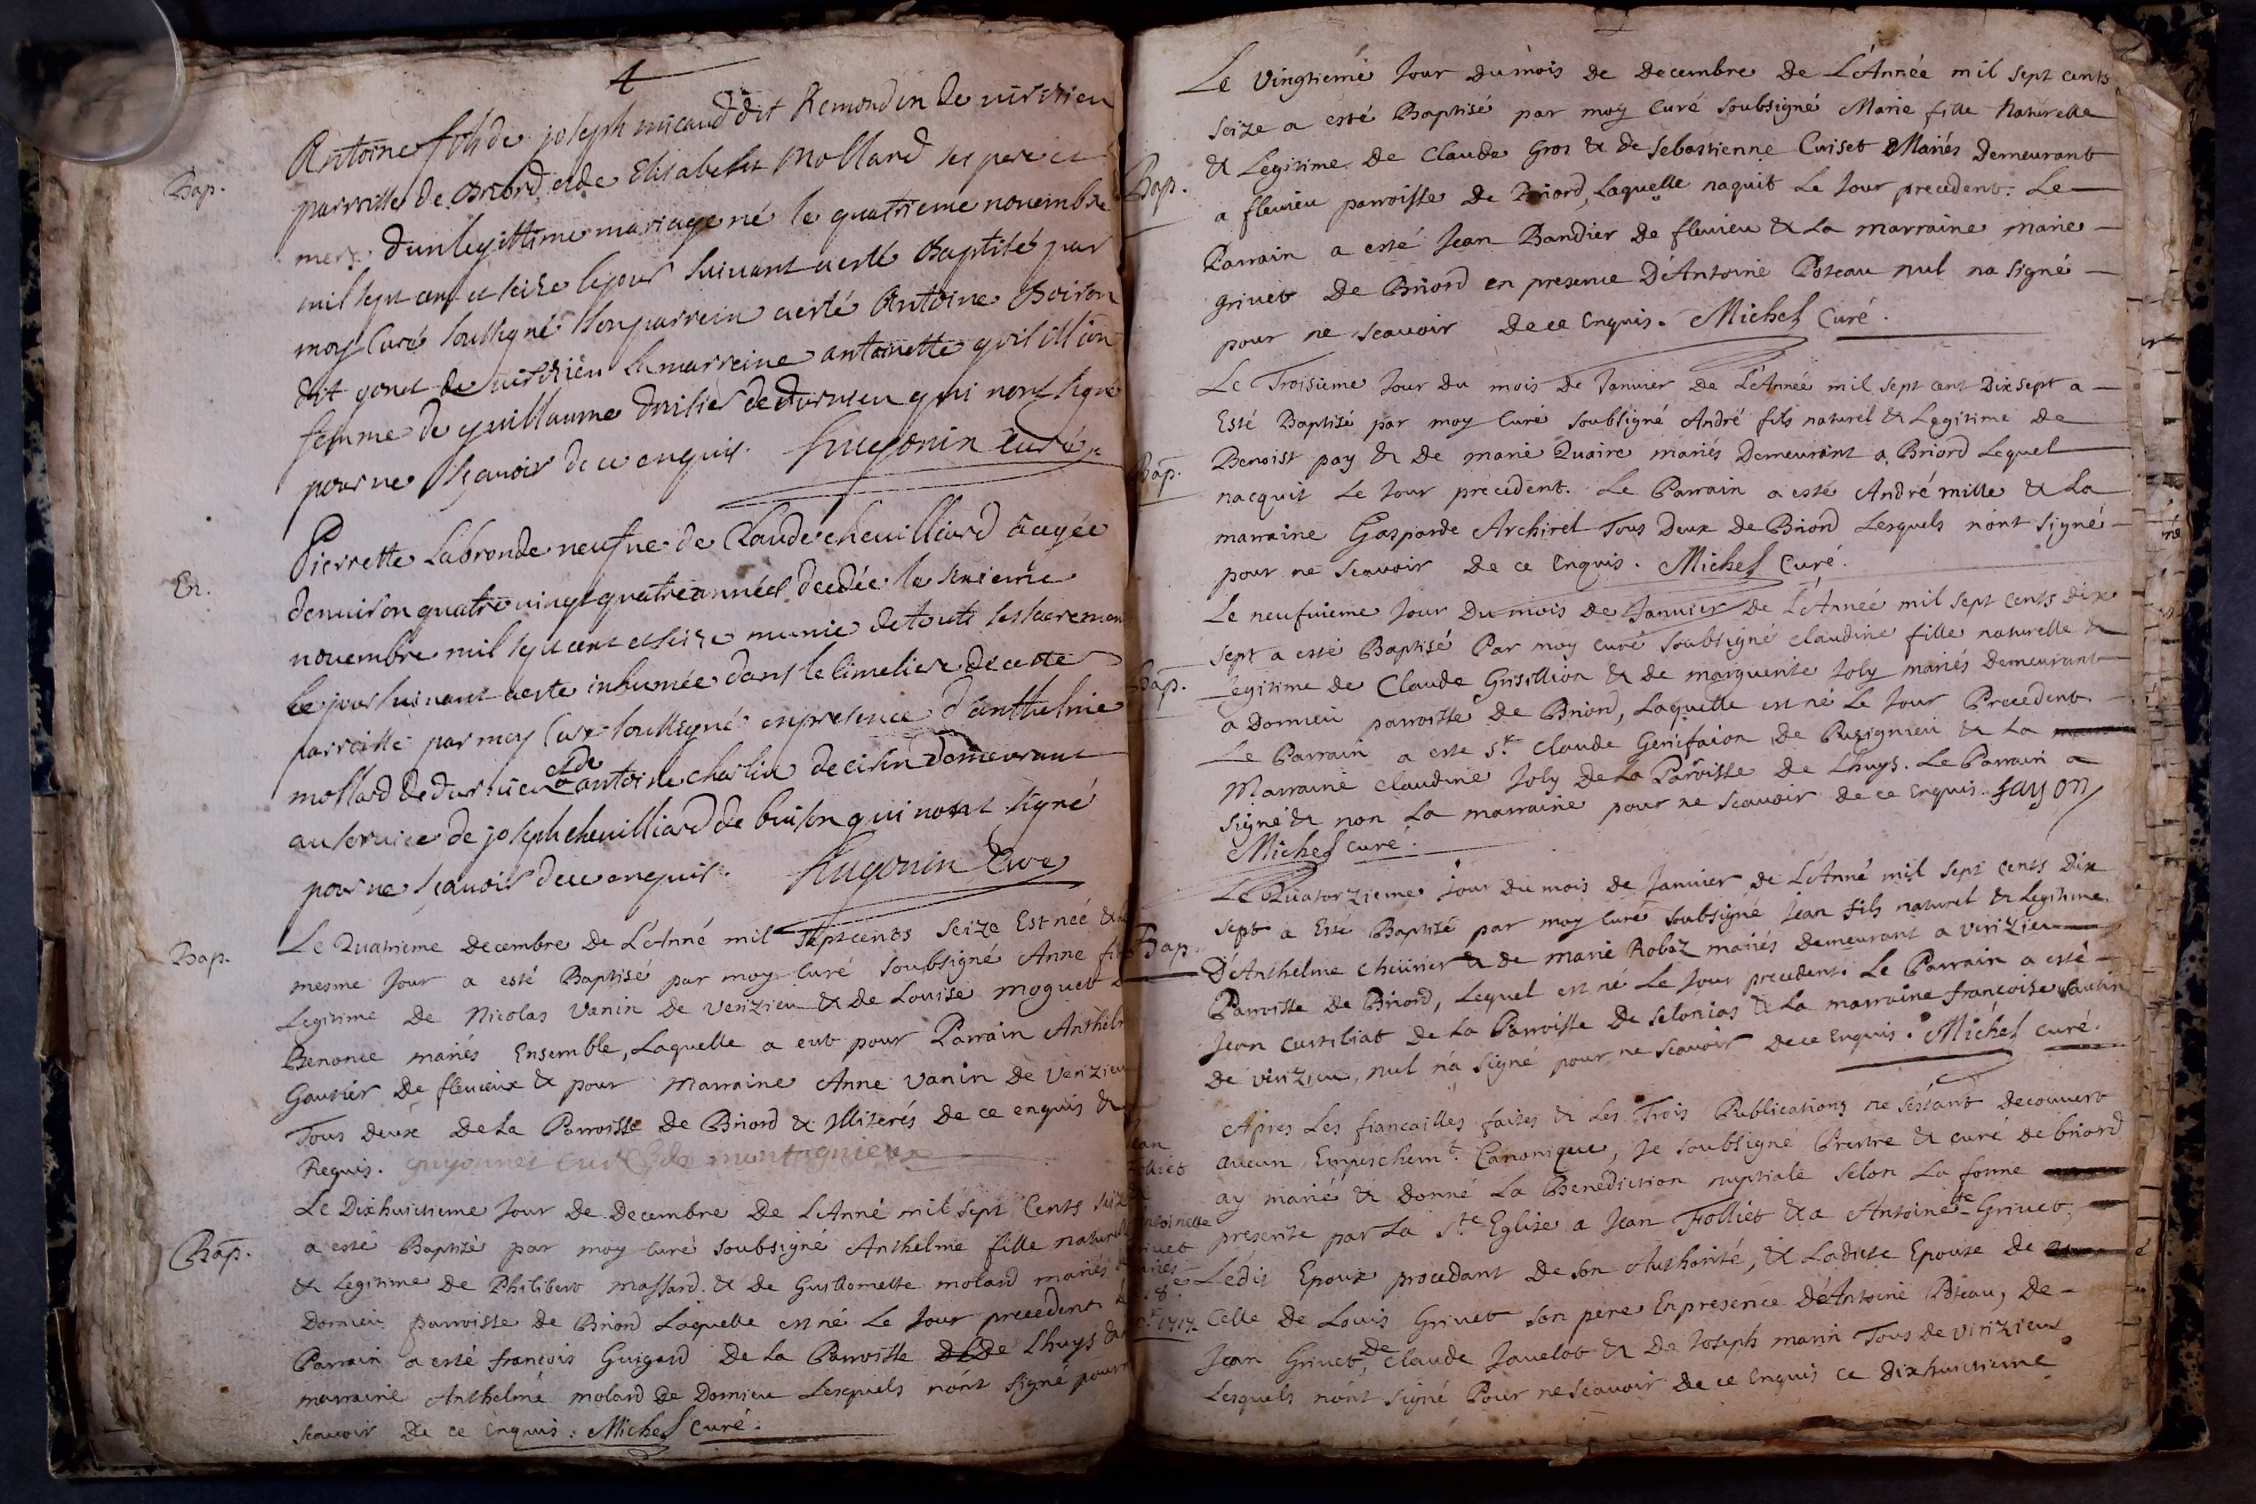 4
Bap.
Antoine fils de joseph micaud dit Remondin de virizieu
parroisse de Briord, et de Elisabeth Mollard ses pere et
mere d'un legittime mariage né le quatrieme novembre
mil sept cent et seize le jour suivant a esté Baptisé par
moy Curé soussigné son parrein a esté Antoine Boison
dit gonet de virizieu la marreine antoinette
femme de guillaume de dornieu qui n'ont signé
pour ne sçavoir de ce enquis. Hugonin Curé
En.
Pierrette Labronde neufve de Claude cheuilliard aagée
d'enuiron quatre vingt quatre années decedée le sixieme
novembre mil sept cent et seize munie de touts ses sacremen
le jour suivant a esté inhumée dans le cimetiere de cette
parroisse par moy Curé soussigné en presence d'anthelme
mollard de dornieu et de antoine charlin de cirin domeurant
au service de joseph cheuilliard de buison qui n'ont signé
pour ne sçavoir de ce enquis. Hugonin Curé
Bap.
Le Quatrieme decembre de L'Anné mil septcents seize Est néé &
mesme Jour a esté Baptisé par moy Curé soubsigné Anne fil
Legitime De Nicolas Vanin De Verizieu & de Louise moguet
Benonce mariés Ensemble, Laquelle a eut pour Parrain Anthel
Gautier De flevieux & pour Marraine Anne Vanin de Verizieu
Tous deux De La Parroisse de Briord & Illiterés de ce enquis &
Requis. guyonnet curé de montagnieux
Bap.
Le Dixhuictieme Jour de Decembre De L'Anné mil sept Cents seize
a esté Baptisé par moy Curé soubsigné Anthelme fille naturelle
& Legitime De Philibert massard & De Guillomette molard mariés
Dornieu parroisse de Briord Laquelle est né Le Jour precedent
Parrain a esté françois Guigard De La Parroisse de Lhuys &
marraine Anthelme molard de Dornieu Lesquels n'ont signé pour
scavoir De ce Enquis. Michel Curé.
Le Vingtieme Jour du mois de Decembre de L'Année mil sept cents
seize a esté Baptisé par moy Curé soubsigné Marie fille Naturelle
Bap.
& Legitime De Claude Gros & de Sebastienne Cuiset Mariés Demeurant
a flevieu parroisse De Briord, Laquelle naquit Le Jour precedent. Le
Parrain a esté Jean Bandier De flevieu & La marraine Marie
Grivet De Briord en presence D'Antoine Poteau nul na signé
pour ne scavoir De ce Enquis. Michel Curé.
Le Troisieme Jour du mois De Janvier De L'Année mil sept cent Dix sept a
Esté Baptisé par moy Curé soubsigné André fils naturel & Legitime De
Bap.
Benoist pay & De marie Quaire mariés Demeurant a Briord Lequel
nacquit Le Jour precedent. Le Parrain a esté André mille & La
marraine Gasparde Archiret Tous Deux de Briord Lesquels n'ont signé
pour ne scavoir De ce Enquis. Michel Curé.
Le neufvieme Jour Du mois de Janvier De L'Année mil sept cents dix
sept a esté Baptisé Par moy Curé soubsigné claudine fille naturelle &
Bap.
Legitime de Claude Grisillion & de marguerite Joly mariés demeurant
a Dornieu parroisse De Briord, Laquelle est né Le Jour Precedent
Le Parrain a este Sr. Claude Genifaion de Pusignieu & La
Marraine Claudine Joly De La Paroisse De Lhuys. Le Parrain a
signé & non La marraine pour ne scavoir de ce Enquis. fayon
Michel Curé.
Le Quatorzieme Jour du mois de Janvier de L'Anné mil sept cents Dix
sept a Esté Baptisé par moy Curé soubsigné Jean fils naturel & Legitime
Bap.
D'Anthelme cheurier & de marie Robez mariés demeurant a Virizieu
Parroisse De Briord, Lequel est né Le Jour precedent. Le Parrain a esté
Jean Curtiliat de La Parroisse De Selonias & La marraine françoise Vautin
De virizieu, nul n'a signé pour ne scavoir de ce enquis. Michel Curé.
Jean
Folliet
&
Antoinette
Grivet
mariés
Le 18e
1717.
Apres Les fiancailles faites & Les Trois Publications ne s'estant decouvert
aucun Empeschemt. Canonique, Je soubsigné Prestre & curé de briord
ay marié & Donné La Benediction nuptiale selon La forme
prescrite par La Ste Eglise a Jean Folliet & a Antoinette Grivet,
Ledit Epoux procedant De son Authorité, & Ladite Epouse de
Celle de Louis Grivet son pere En presence D'Antoine Poteau, De
Jean Grivet, de Claude Javelot & De Joseph marin Tous de Virizieu
Lesquels n'ont signé Pour ne scavoir de ce Enquis ce dixhuictieme